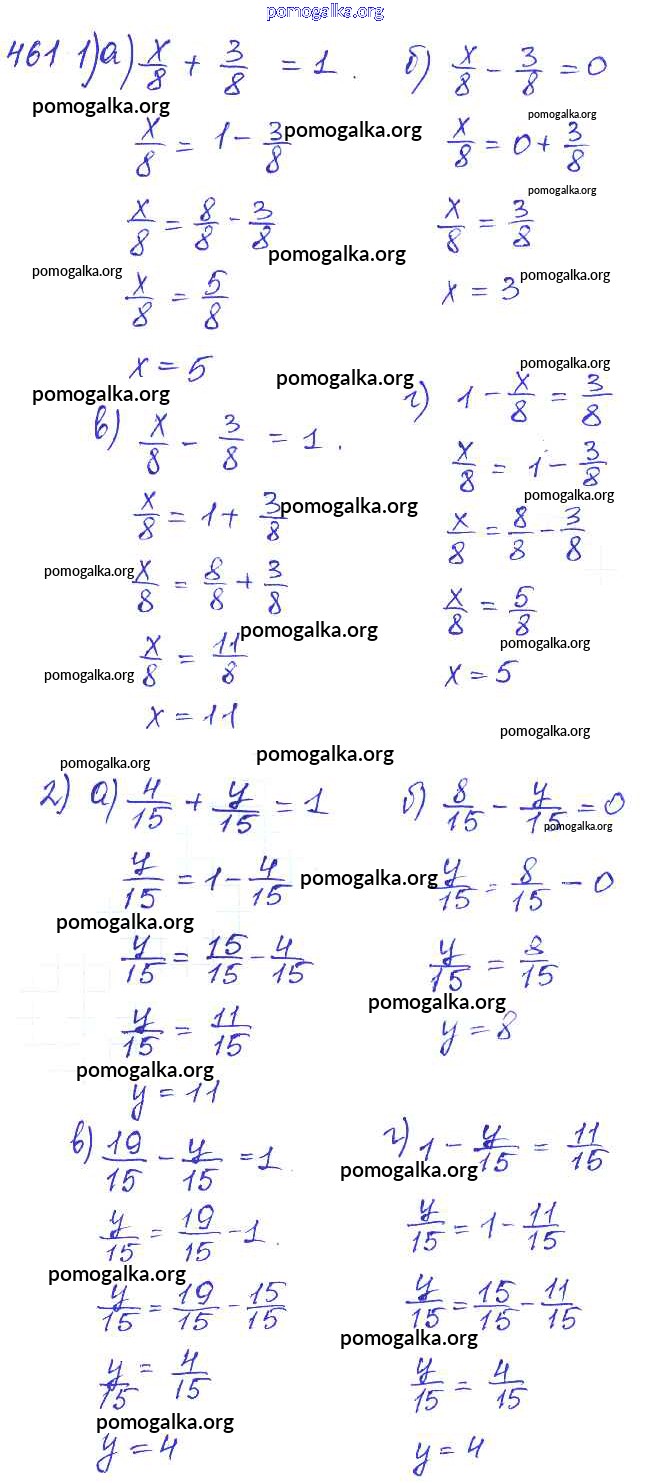 pomogalka.org
461 1) а) x/8 + 3/8 = 1.
pomogalka.org
x/8 = 1 - 3/8 pomogalka.org
x/8 = 8/8 - 3/8
pomogalka.org
pomogalka.org
x/8 = 5/8
x = 5
б) x/8 - 3/8 = 0
pomogalka.org
x/8 = 0 + 3/8
pomogalka.org
x/8 = 3/8
pomogalka.org
x = 3
pomogalka.org
pomogalka.org
в) x/8 - 3/8 = 1.
x/8 = 1 + 3/8 pomogalka.org
pomogalka.org x/8 = 8/8 + 3/8
pomogalka.org
x/8 = 11/8
pomogalka.org
x = 11
pomogalka.org
г) 1 - x/8 = 3/8
x/8 = 1 - 3/8
pomogalka.org
x/8 = 8/8 - 3/8
x/8 = 5/8
pomogalka.org
x = 5
pomogalka.org
pomogalka.org
pomogalka.org
2) а) 4/15 + y/15 = 1
y/15 = 1 - 4/15 pomogalka.org
pomogalka.org
y/15 = 15/15 - 4/15
y/15 = 11/15
pomogalka.org
y = 11
б) 8/15 - y/15 = 0
pomogalka.org
y/15 = 8/15 - 0
y/15 = 8/15
pomogalka.org
y = 8
в) 19/15 - y/15 = 1.
y/15 = 19/15 - 1.
pomogalka.org
y/15 = 19/15 - 15/15
y/15 = 4/15
pomogalka.org
y = 4
г) 1 - y/15 = 11/15
pomogalka.org
y/15 = 1 - 11/15
y/15 = 15/15 - 11/15
pomogalka.org
y/15 = 4/15
y = 4